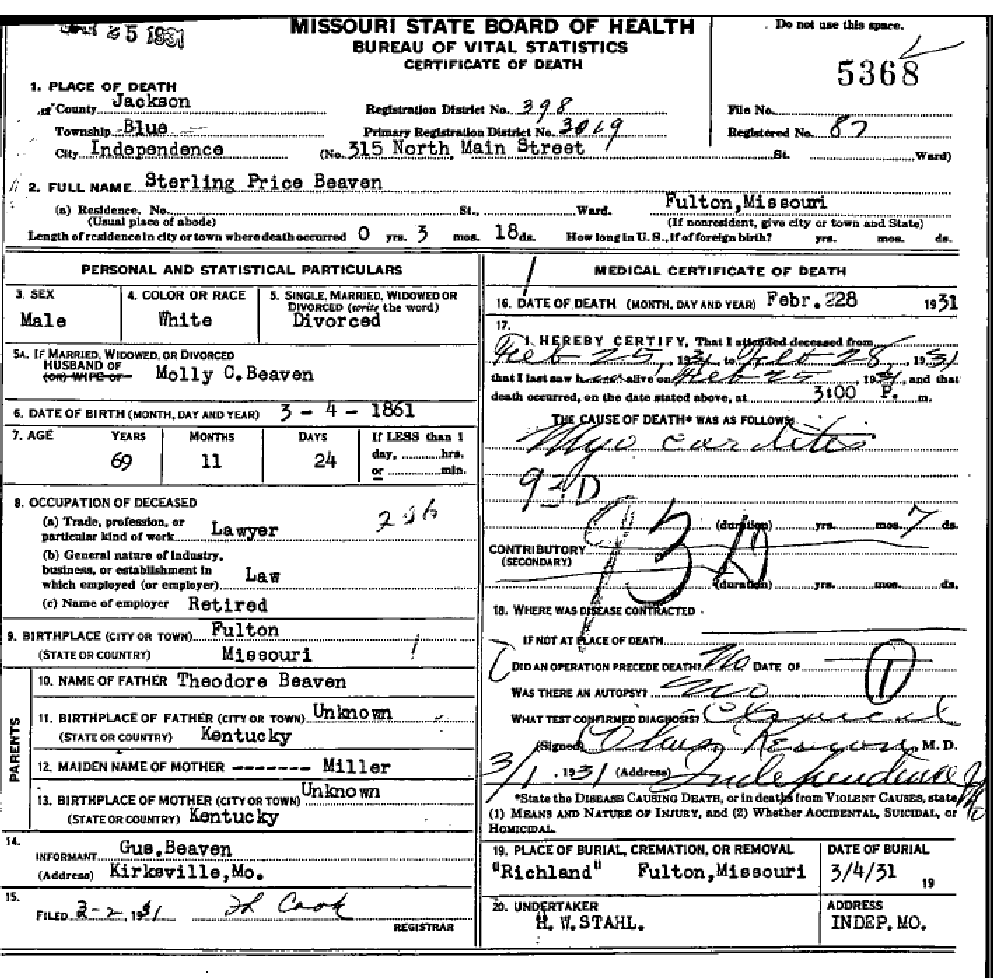 25 1931
MISSOURI STATE BOARD OF HEALTH
BUREAU OF VITAL STATISTICS
CERTIFICATE OF DEATH
Do not use this space.
5368
1. PLACE OF DEATH
County Jackson Registration District No. 398 File No.
Township Blue Primary Registration District No. 3019 Registered No. 87
City Independence (No. 315 North Main Street St. Ward)
2. FULL NAME Sterling Price Beaven
(a) Residence. No. St., Ward. Fulton, Missouri
(Usual place of abode) (If nonresident, give city or town and State)
Length of residence in city or town where death occurred 0 yrs. 3 mos. 18 ds. How long in U. S., if of foreign birth? yrs. mos. ds.
PERSONAL AND STATISTICAL PARTICULARS
3. SEX 4. COLOR OR RACE 5. SINGLE, MARRIED, WIDOWED OR DIVORCED (write the word)
Male White Divorced
5A. IF MARRIED, WIDOWED, OR DIVORCED
HUSBAND OF
(OR) WIFE OF Molly C. Beaven
6. DATE OF BIRTH (MONTH, DAY AND YEAR) 3 - 4 - 1861
7. AGE YEARS MONTHS DAYS If LESS than 1
day, hrs.
or min.
69 11 24
8. OCCUPATION OF DECEASED
(a) Trade, profession, or
particular kind of work Lawyer
(b) General nature of industry,
business, or establishment in
which employed (or employer) Law
(c) Name of employer Retired
9. BIRTHPLACE (CITY OR TOWN) Fulton
(STATE OR COUNTRY) Missouri
PARENTS
10. NAME OF FATHER Theodore Beaven
11. BIRTHPLACE OF FATHER (CITY OR TOWN) Unknown
(STATE OR COUNTRY) Kentucky
12. MAIDEN NAME OF MOTHER ------- Miller
13. BIRTHPLACE OF MOTHER (CITY OR TOWN) Unknown
(STATE OR COUNTRY) Kentucky
14.
INFORMANT Gus. Beaven
(Address) Kirksville, Mo.
15.
FILED 3-2, 1931 Cook
REGISTRAR
MEDICAL CERTIFICATE OF DEATH
16. DATE OF DEATH (MONTH, DAY AND YEAR) Febr. 228 1931
17.
I HEREBY CERTIFY, That I attended deceased from
Feb 25, 1931, to Feb 28, 1931
that I last saw h alive on Feb 25, 1931, and that
death occurred, on the date stated above, at 3:00 P. m.
THE CAUSE OF DEATH* WAS AS FOLLOWS:
Myo carditis
93D
93D
(duration) yrs. mos. 7 ds.
CONTRIBUTORY
(SECONDARY)
(duration) yrs. mos. ds.
18. WHERE WAS DISEASE CONTRACTED
IF NOT AT PLACE OF DEATH
DID AN OPERATION PRECEDE DEATH? No DATE OF
1
WAS THERE AN AUTOPSY? no
WHAT TEST CONFIRMED DIAGNOSIS?
(Signed) M. D.
3/1, 1931 (Address) Independence Mo
*State the DISEASE CAUSING DEATH, or in deaths from VIOLENT CAUSES, state
(1) MEANS AND NATURE OF INJURY, and (2) Whether ACCIDENTAL, SUICIDAL, or
HOMICIDAL.
19. PLACE OF BURIAL, CREMATION, OR REMOVAL DATE OF BURIAL
"Richland" Fulton, Missouri 3/4/31 19
20. UNDERTAKER ADDRESS
H. W. STAHL. INDEP. MO.